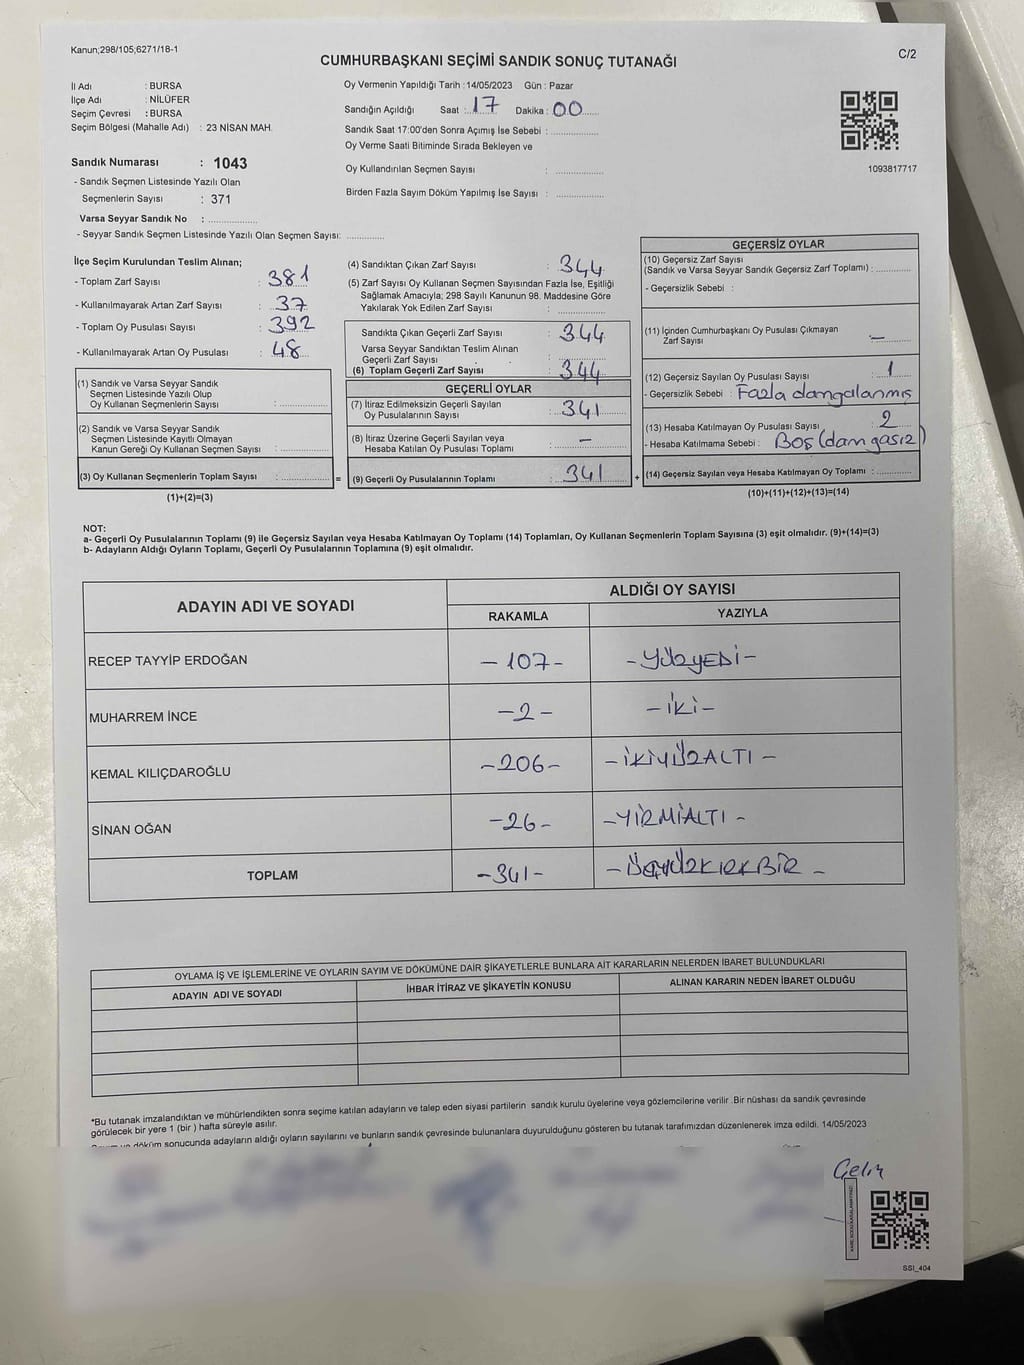 Kanun;298/105;6271/18-1
C/2
CUMHURBAŞKANI SEÇİMİ SANDIK SONUÇ TUTANAĞI
İl Adı : BURSA
İlçe Adı : NİLÜFER
Seçim Çevresi : BURSA
Seçim Bölgesi (Mahalle Adı) : 23 NİSAN MAH.
Oy Vermenin Yapıldığı Tarih : 14/05/2023 Gün : Pazar
Sandığın Açıldığı Saat : 17 Dakika : 00
Sandık Saat 17:00'den Sonra Açımış İse Sebebi :
Oy Verme Saati Bitiminde Sırada Bekleyen ve
Oy Kullandırılan Seçmen Sayısı :
Birden Fazla Sayım Döküm Yapılmış İse Sayısı :
1093817717
Sandık Numarası : 1043
- Sandık Seçmen Listesinde Yazılı Olan
Seçmenlerin Sayısı : 371
Varsa Seyyar Sandık No :
- Seyyar Sandık Seçmen Listesinde Yazılı Olan Seçmen Sayısı:
İlçe Seçim Kurulundan Teslim Alınan;
- Toplam Zarf Sayısı : 381
- Kullanılmayarak Artan Zarf Sayısı : 37
- Toplam Oy Pusulası Sayısı : 392
- Kullanılmayarak Artan Oy Pusulası : 48
(1) Sandık ve Varsa Seyyar Sandık
Seçmen Listesinde Yazılı Olup
Oy Kullanan Seçmenlerin Sayısı :
(2) Sandık ve Varsa Seyyar Sandık
Seçmen Listesinde Kayıtlı Olmayan
Kanun Gereği Oy Kullanan Seçmen Sayısı :
(3) Oy Kullanan Seçmenlerin Toplam Sayısı :
(1)+(2)=(3)
(4) Sandıktan Çıkan Zarf Sayısı : 344
(5) Zarf Sayısı Oy Kullanan Seçmen Sayısından Fazla İse, Eşitliği
Sağlamak Amacıyla; 298 Sayılı Kanunun 98. Maddesine Göre
Yakılarak Yok Edilen Zarf Sayısı :
Sandıkta Çıkan Geçerli Zarf Sayısı : 344
Varsa Seyyar Sandıktan Teslim Alınan
Geçerli Zarf Sayısı :
(6) Toplam Geçerli Zarf Sayısı : 344
GEÇERLİ OYLAR
(7) İtiraz Edilmeksizin Geçerli Sayılan
Oy Pusulalarının Sayısı : 341
(8) İtiraz Üzerine Geçerli Sayılan veya
Hesaba Katılan Oy Pusulası Toplamı : –
= (9) Geçerli Oy Pusulalarının Toplamı : 341 +
GEÇERSİZ OYLAR
(10) Geçersiz Zarf Sayısı
(Sandık ve Varsa Seyyar Sandık Geçersiz Zarf Toplamı) :
- Geçersizlik Sebebi :
(11) İçinden Cumhurbaşkanı Oy Pusulası Çıkmayan
Zarf Sayısı : –
(12) Geçersiz Sayılan Oy Pusulası Sayısı : 1
- Geçersizlik Sebebi : Fazla damgalanmış
(13) Hesaba Katılmayan Oy Pusulası Sayısı : 2
- Hesaba Katılmama Sebebi : Boş (damgasız)
(14) Geçersiz Sayılan veya Hesaba Katılmayan Oy Toplamı :
(10)+(11)+(12)+(13)=(14)
NOT:
a- Geçerli Oy Pusulalarının Toplamı (9) ile Geçersiz Sayılan veya Hesaba Katılmayan Oy Toplamı (14) Toplamları, Oy Kullanan Seçmenlerin Toplam Sayısına (3) eşit olmalıdır. (9)+(14)=(3)
b- Adayların Aldığı Oyların Toplamı, Geçerli Oy Pusulalarının Toplamına (9) eşit olmalıdır.
ADAYIN ADI VE SOYADI
ALDIĞI OY SAYISI
RAKAMLA YAZIYLA
RECEP TAYYİP ERDOĞAN -107- -YÜZYEDİ-
MUHARREM İNCE -2- -İKİ-
KEMAL KILIÇDAROĞLU -206- -İKİYÜZALTI-
SİNAN OĞAN -26- -YİRMİALTI-
TOPLAM -341- -ÜÇYÜZKIRKBİR-
OYLAMA İŞ VE İŞLEMLERİNE VE OYLARIN SAYIM VE DÖKÜMÜNE DAİR ŞİKAYETLERLE BUNLARA AİT KARARLARIN NELERDEN İBARET BULUNDUKLARI
ADAYIN ADI VE SOYADI İHBAR İTİRAZ VE ŞİKAYETİN KONUSU ALINAN KARARIN NEDEN İBARET OLDUĞU
*Bu tutanak imzalandıktan ve mühürlendikten sonra seçime katılan adayların ve talep eden siyasi partilerin sandık kurulu üyelerine veya gözlemcilerine verilir .Bir nüshası da sandık çevresinde
görülecek bir yere 1 (bir ) hafta süreyle asılır.
ve döküm sonucunda adayların aldığı oyların sayılarını ve bunların sandık çevresinde bulunanlara duyurulduğunu gösteren bu tutanak tarafımızdan düzenlenerek imza edildi. 14/05/2023
SSI_404